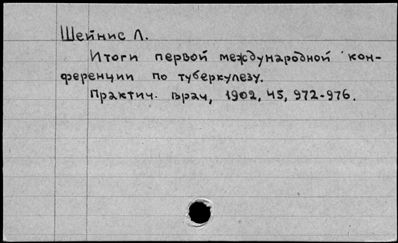 Шейнис Л.
Итоги первой международной кон-
ференции по туберкулезу.
Практич. врач, 1902, 45, 972-976.